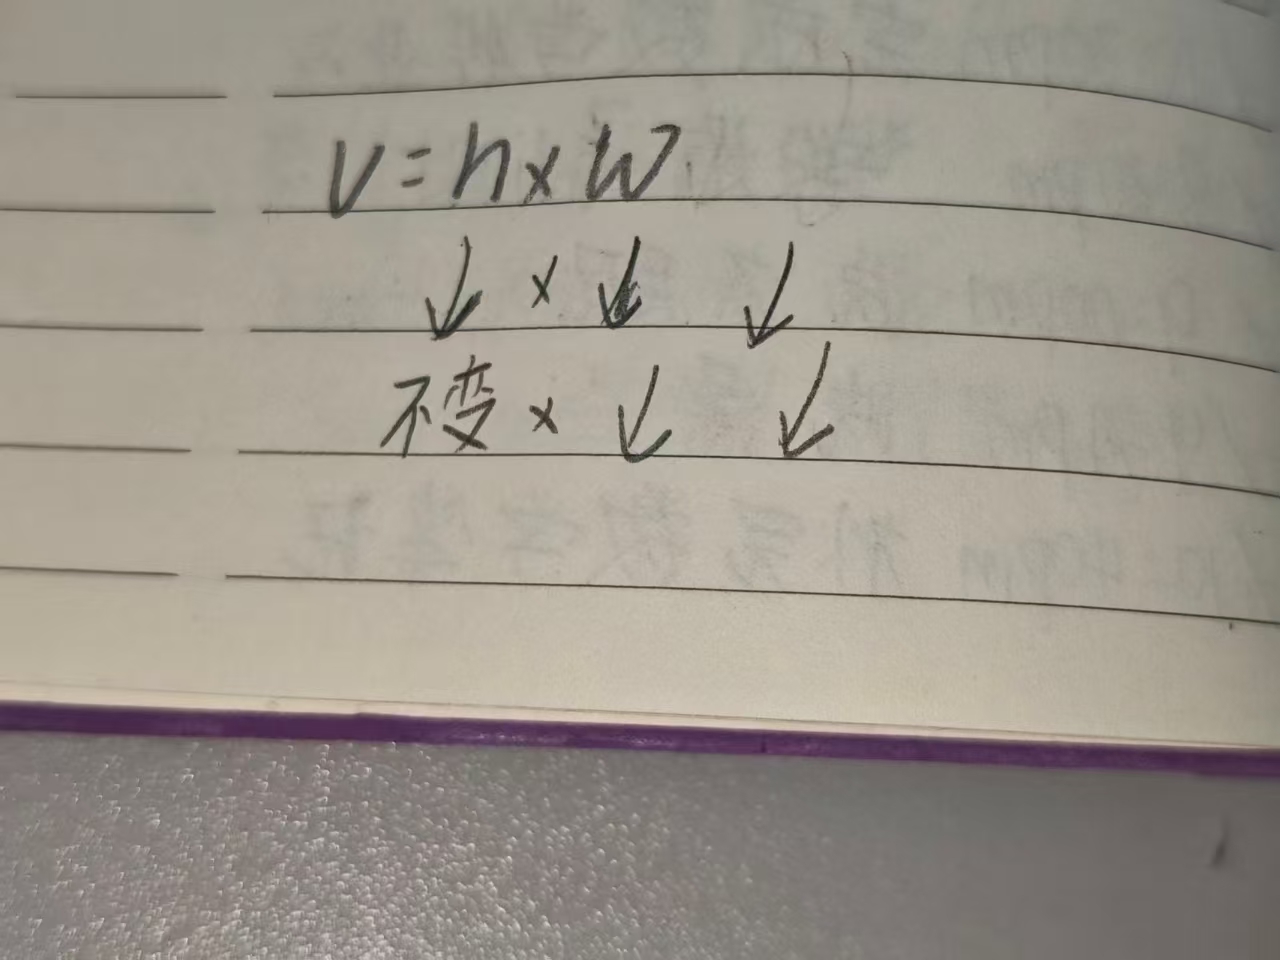 V=h×W
↓×↓ ↓
不变×↓ ↓